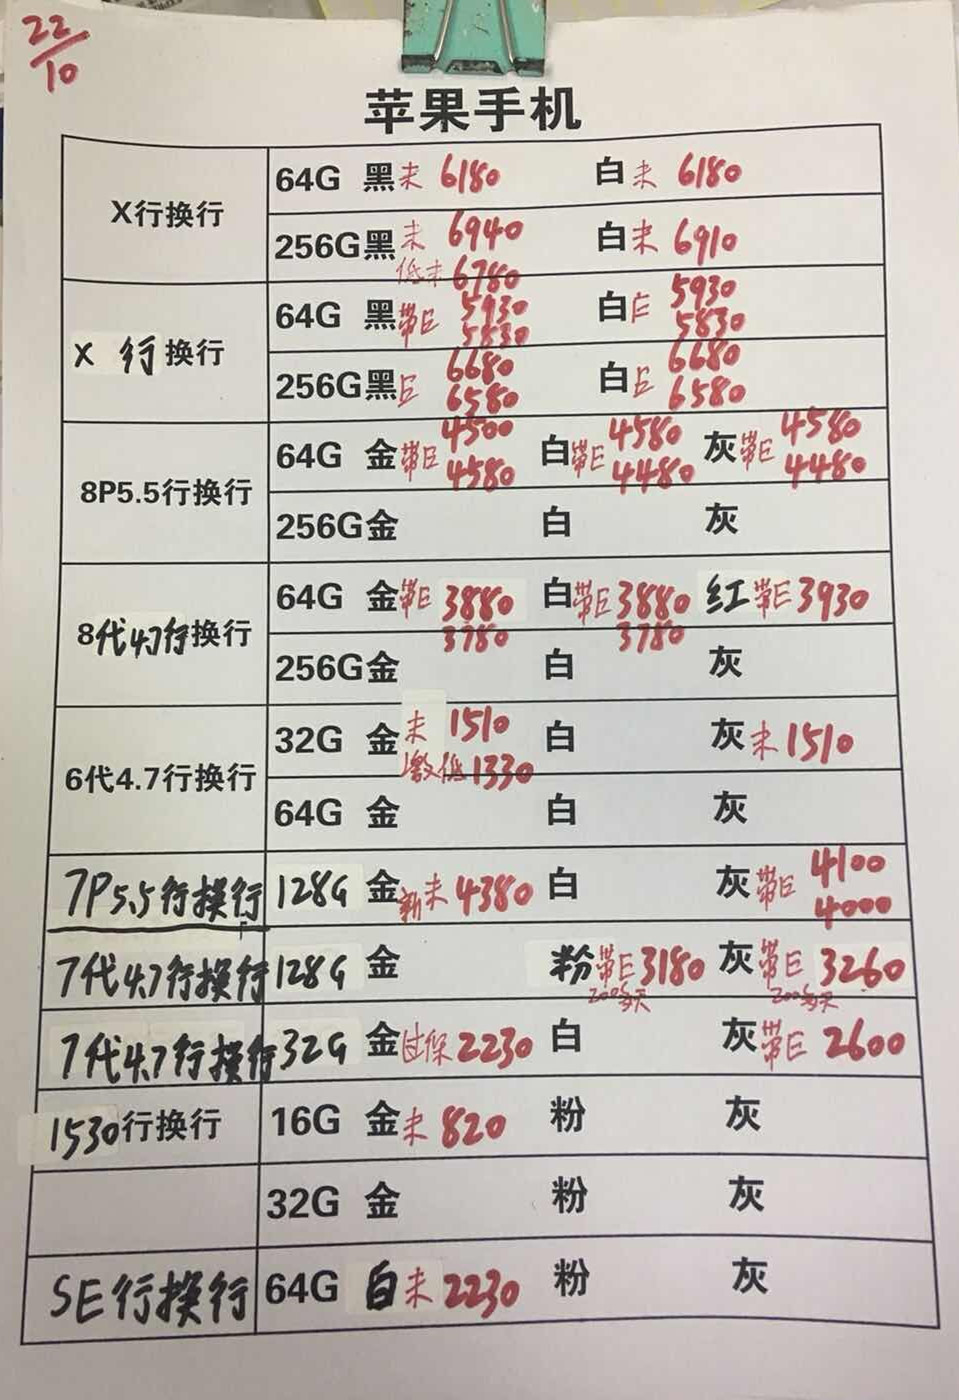 22/10
苹果手机
X行换行
64G 黑 未 6180 白 未 6180
256G 黑 未 6940 白 未 6910
低未 6780
X 行换行
64G 黑 带E 5930 白 E 5930
5830 5830
256G 黑 E 6680 白 E 6680
6580 6580
8P5.5行换行
64G 金 带E 4500 白 带E 4580 灰 带E 4580
4580 4480 4480
256G 金 白 灰
8代4.7行换行
64G 金 带E 3880 白 带E 3880 红 带E 3930
3780 3780
256G 金 白 灰
6代4.7行换行
32G 金 未 1510 白 灰 未 1510
激低 1330
64G 金 白 灰
7P5.5行换行 128G 金 新未 4380 白 灰 带E 4100
4000
7代4.7行换行 128G 金 粉 带E 3180 灰 带E 3260
200多天 200多天
7代4.7行换行 32G 金 过保 2230 白 灰 带E 2600
1530行换行 16G 金 未 820 粉 灰
32G 金 粉 灰
SE行换行 64G 白 未 2230 粉 灰